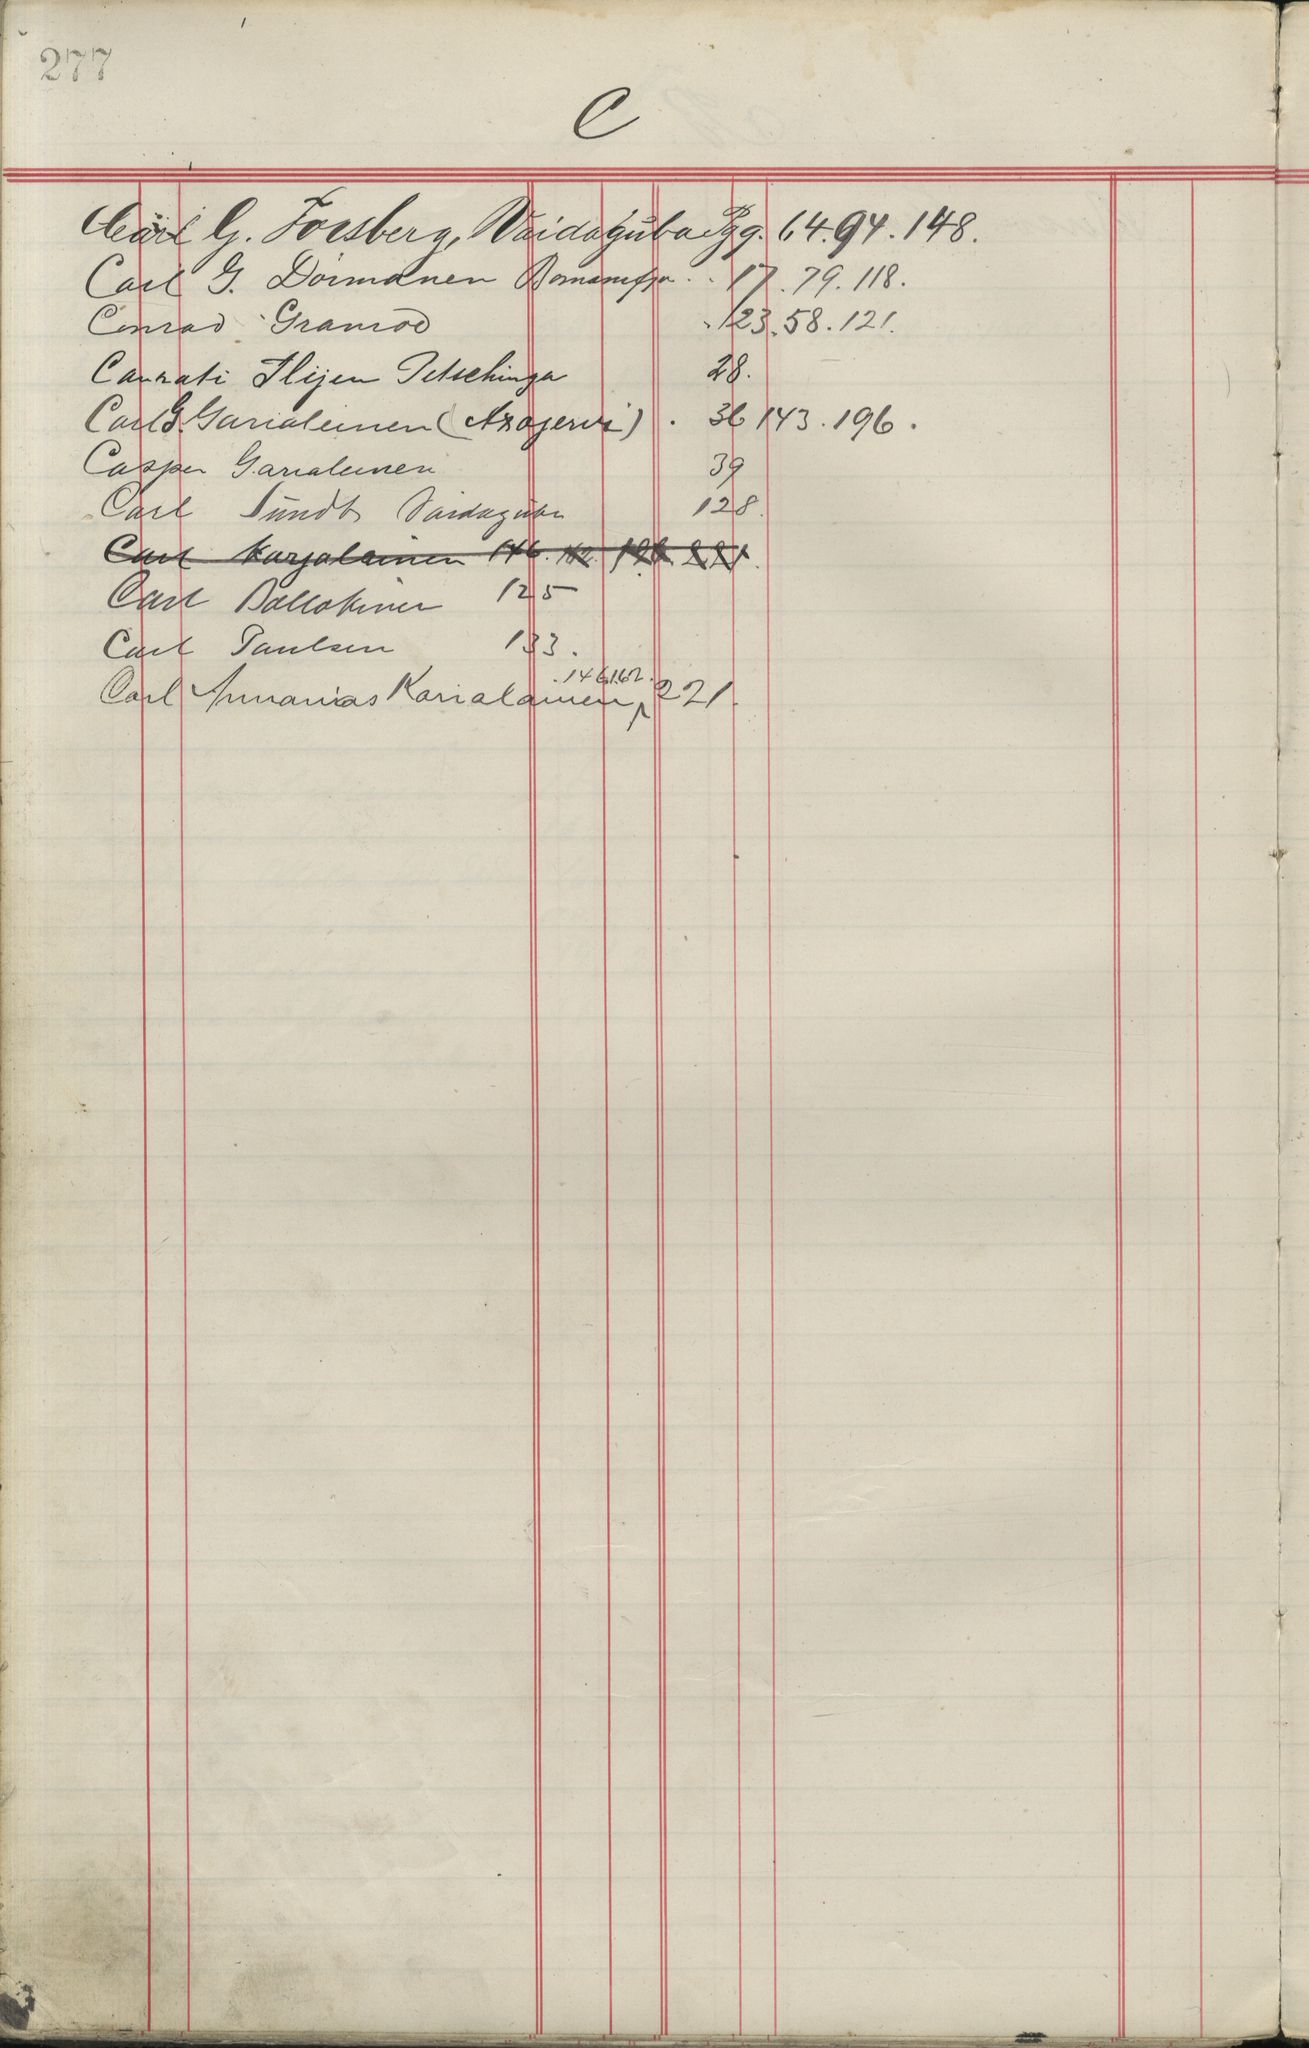 277
C
Carl G. Forsberg, Vaidaguba Pgg. 64. 94. 148.
Carl G. Dörmänen . 17. 79. 118.
Conrad Granrod . 123. 58. 121.
Canrati Ilijen Petschinga 28.
Carl G. Garialeinen (Axajervi) . 36 143. 196.
Casper Garialeinen 39
Carl Sundt Vaidaguba 128.
Carl Karjalainen 146. 162. 196 221.
Carl 125
Carl Paulsen 133.
.146.162.
Carl Annanias Karialainen, 221.